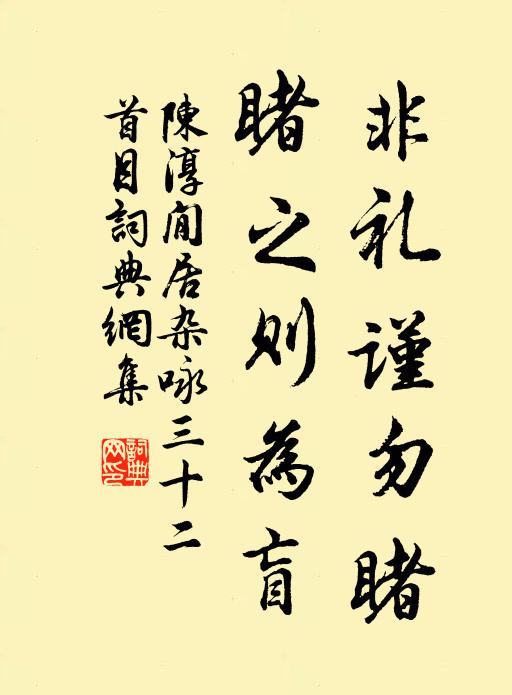 非礼謹勿睹
睹之則為盲
陳淳閒居杂咏三十二
首目詞典網集
詞典
网印